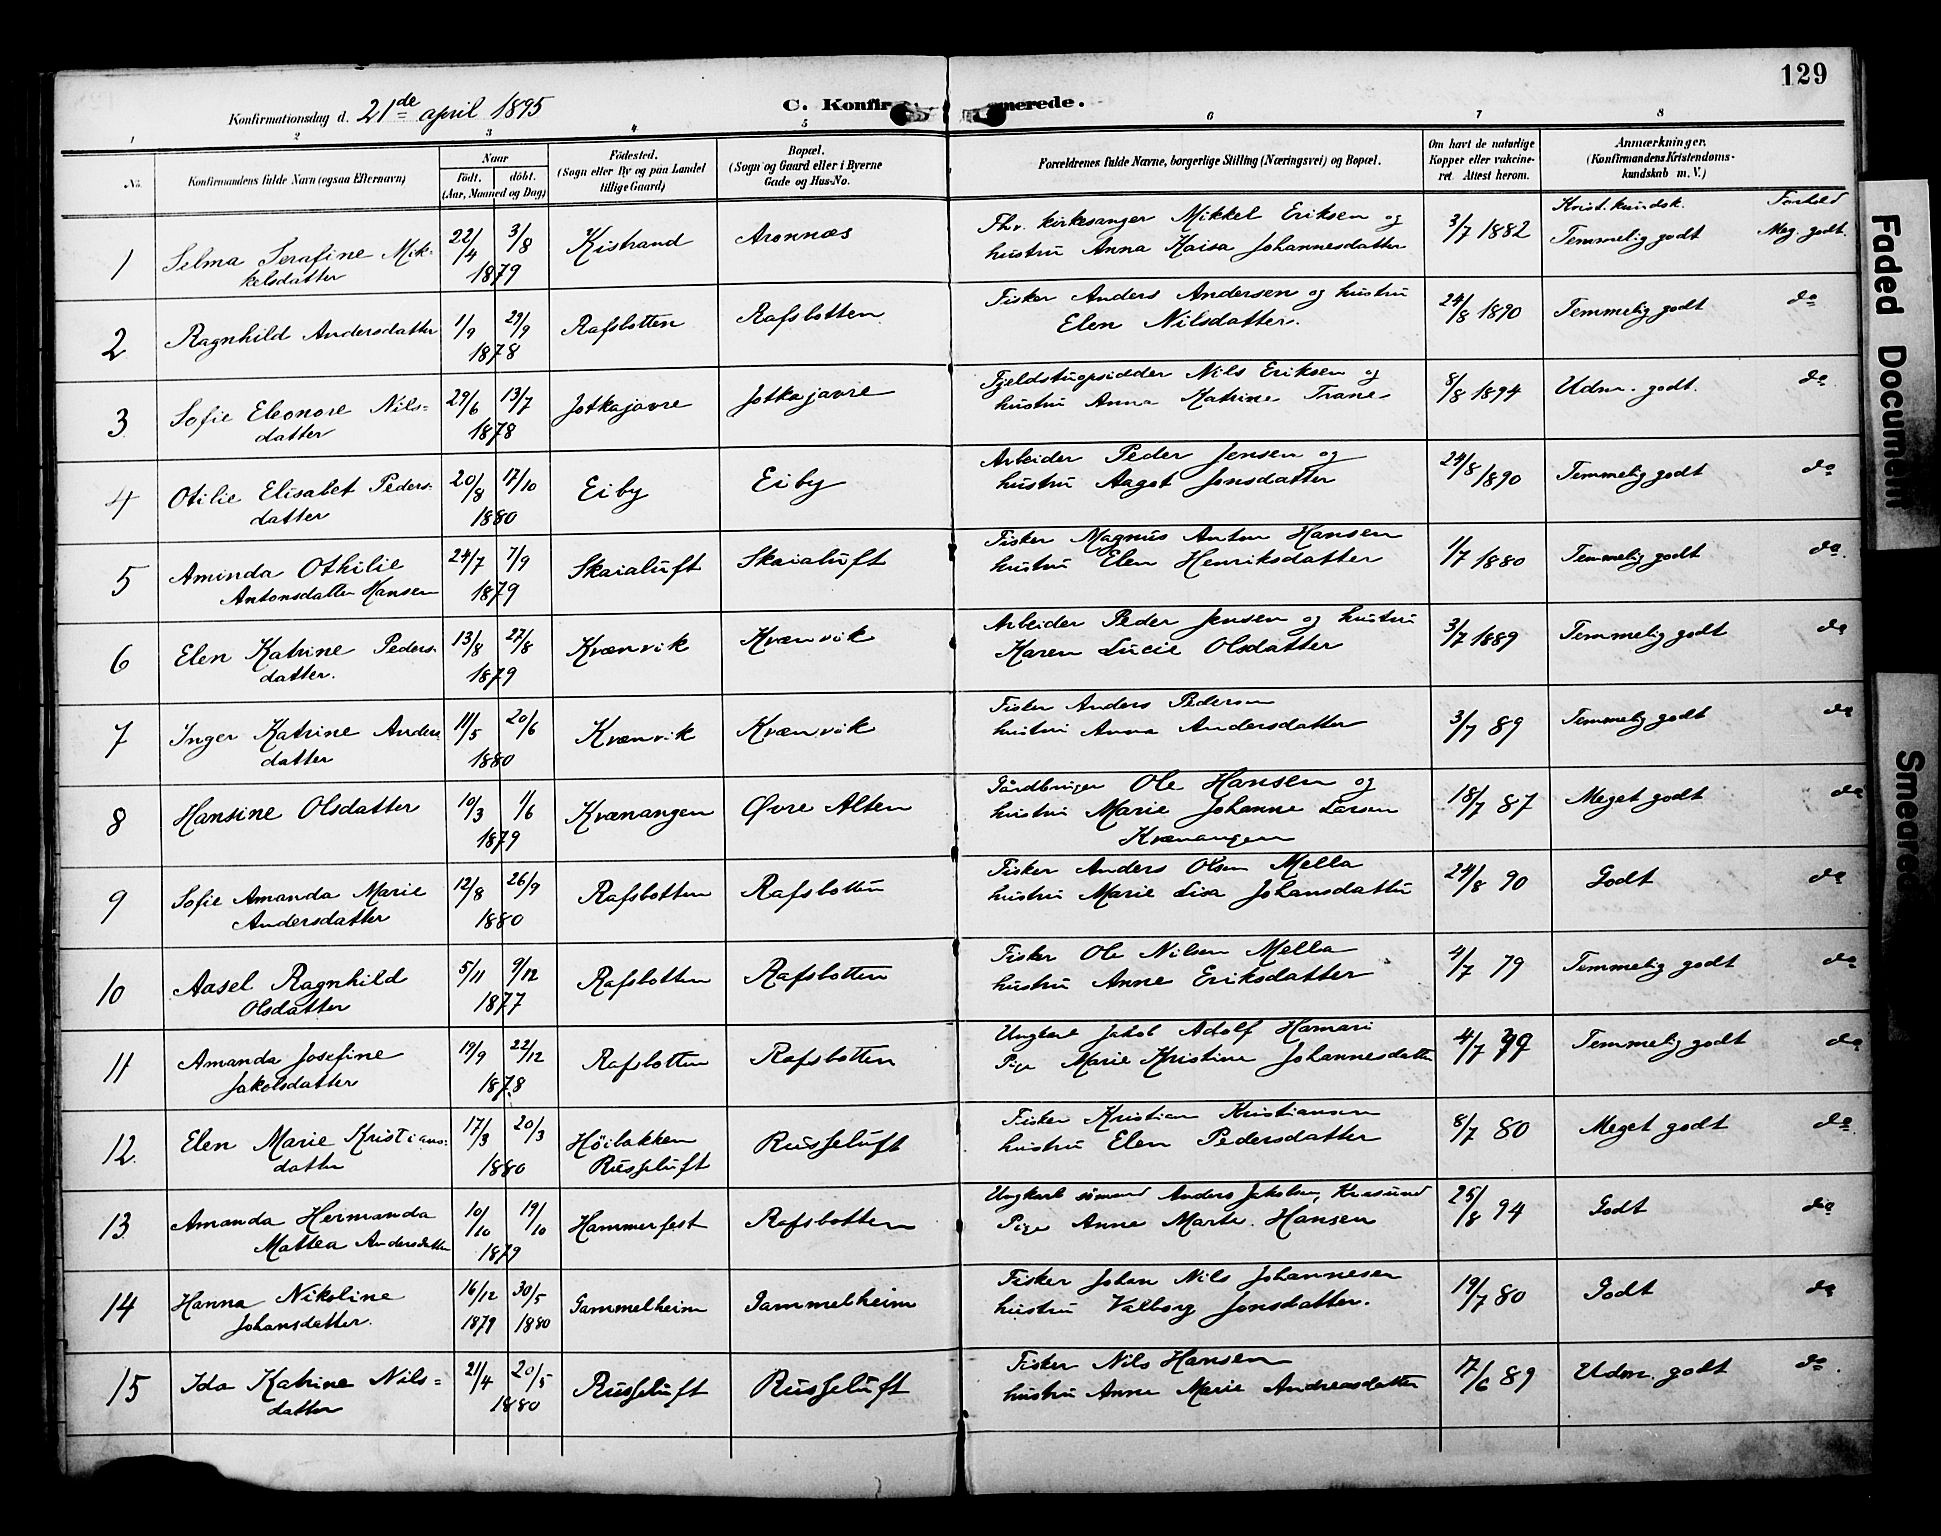 129
C. Konfir merede.
Konfirmationsdag d. 21de april 1895
1 2 3 4 5 6 7 8
No.
Konfirmandens fulde Navn (ogsaa Efternavn)
Naar
födt. döbt.
(Aar, Maaned og Dag)
Födested.
(Sogn eller By og paa Landet
tillige Gaard)
Bopæl.
(Sogn og Gaard eller i Byerne
Gade og Hus-No.
Forældrenes fulde Navne, borgerlige Stilling (Næringsvei) og Bopæl.
Om havt de naturlige
Kopper eller vakcine-
ret. Attest herom.
Anmærkninger.
(Konfirmandens Kristendoms-
kundskab m. V.)
Krist. kundsk. Forhold
1 Selma Serafine Mik- 22/4 3/8 Kistrand Aronnæs Fhv. kirkesanger Mikkel Eriksen og 3/7 1882 Temmelig godt Meg. godt.
kelsdatter 1879 hustru Anna Kaisa Johannesdatter
2 Ragnhild Andersdatter 1/9 29/9 Rafsbotten Rafsbotten Fisker Anders Andersen og hustru 24/8 1890 Temmelig godt do
1878 Elen Nilsdatter.
3. Sofie Eleonore Nils- 29/6 13/7 Jotkajavre Jotkajavre Fjeldstuopsidder Nils Eriksen og 8/8 1894 Udm. godt. do
datter 1878 hustru Anna Katrine Trane
4 Otilie Elisabet Peders- 20/8 17/10 Eiby Eiby Arbeider Peder Jensen og 24/8 1890 Temmelig godt do
datter 1880 hustru Aagot Jonsdatter
5 Aminda Othilie 24/7 7/9 Skaialuft Skaialuft Fisker Magnus Anton Hansen 1/7 1880 Temmelig godt do
Antonsdatter Hansen 1879 hustru Elen Henriksdatter
6 Elen Katrine Peders- 13/8 27/8 Kvænvik Kvænvik Arbeider Peder Jensen og hustru 3/7 1889 Temmelig godt do
datter. 1879 Karen Lucie Olsdatter
7 Inger Katrine Anders- 11/5 20/6 Kvænvik Kvænvik Fisker Anders Pedersen 3/7 89 Temmelig godt do
datter 1880 hustru Anna Andersdatter
8 Hansine Olsdatter 10/3 1/6 Kvænangen Øvre Alten Gårdbruger Ole Hansen og 18/7 87 Meget godt do
1879 hustru Marie Johanne Larsen
Kvænangen
9 Sofie Amanda Marie 12/8 26/9 Rafsbotten Rafsbotten Fisker Anders Olsen Mella 24/8 90 Godt do
Andersdatter 1880 hustru Marie Lisa Johansdatter
10 Aasel Ragnhild 5/11 9/12 Rafsbotten Rafsbotten Fisker Ole Nilsen Mella 4/7 79 Temmelig godt do
Olsdatter 1877 hustru Anne Eriksdatter
11 Amanda Josefine 19/9 22/12 Rafsbotten Rafsbotten Ungkarl Jakob Adolf Hamari 4/7 79 Temmelig godt do
Jakobsdatter 1878 Pige Marie Kristine Johannesdatter
12. Elen Marie Kristians- 17/3 20/3 Høibakken Russeluft Fisker Kristian Kristiansen 8/7 80 Meget godt do
datter 1880 Russeluft hustru Elen Pedersdatter
13. Amanda Hermanda 10/10 19/10 Hammerfest Rafsbotten Ungkarl sømand Anders Jakobsen, 25/8 94 Godt do
Mattea Andersdatter 1879 Pige Anna Marte Hansen
14 Hanna Nikoline 16/12 30/5 Gammelheim Gammelheim Fisker Johan Nils Johannesen 19/7 80 Godt do
Johansdatter. 1879 1880 hustru Valborg Jonsdatter.
15 Ida Katrine Nils- 21/4 20/5 Russeluft Russeluft Fisker Nils Hansen 17/6 89 Udm. godt do
datter 1880 hustru Anne Marie Andreasdatter
Faded Document
Smeared